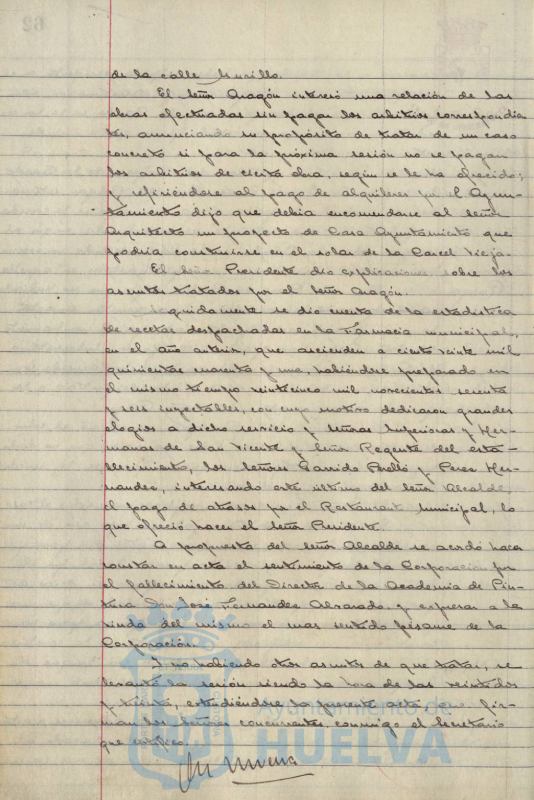 de la calle Murillo.
El Señor Aragón interesó una relación de las
obras efectuadas sin pagar los arbitrios correspondien
tes, anunciando su propósito de tratar de un caso
concreto si para la próxima sesión no se pagan
los arbitrios de cierta obra, según se le ha ofrecido;
y refiriéndose al pago de alquileres por el Ayun-
tamiento dijo que debía encomendarse al Señor
Arquitecto un proyecto de Casa Ayuntamiento que
podría construirse en el solar de la Carcel Vieja.
El Señor Presidente dio explicaciones sobre los
asuntos tratados por el Señor Aragón.
Seguidamente se dio cuenta de la estadística
de recetas despachadas en la Farmacia municipal,
en el año anterior, que ascienden a ciento veinte mil
quinientas cuarenta y una, habiéndose preparado en
el mismo tiempo veinticinco mil novecientos sesenta
y seis inyectables, con cuyo motivo dedicaron grandes
elogios a dicho servicio y Señoras Superiora y Her-
manas de San Vicente y Señor Regente del esta-
blecimiento, los Señores Garrido Perelló y Perez Her-
nandez, interesando este último del Señor Alcalde,
el pago de atrasos por el Restaurant municipal, lo
que ofreció hacer el Señor Presidente.
A propuesta del Señor Alcalde se acordó hacer
constar en acta el sentimiento de la Corporación por
el fallecimiento del Director de la Academia de Pin-
tura Don José Fernandez Alvarado y expresar a la
viuda del mismo el mas sentido pésame de la
Corporación.
Y no habiendo otros asuntos de que tratar, se
levantó la sesión siendo la hora de las veintidos
y treinta, extendiéndose la presente acta que fir-
man los Señores concurrentes, conmigo el Secretario
que certifico.
Ayuntamiento de
HUELVA
62